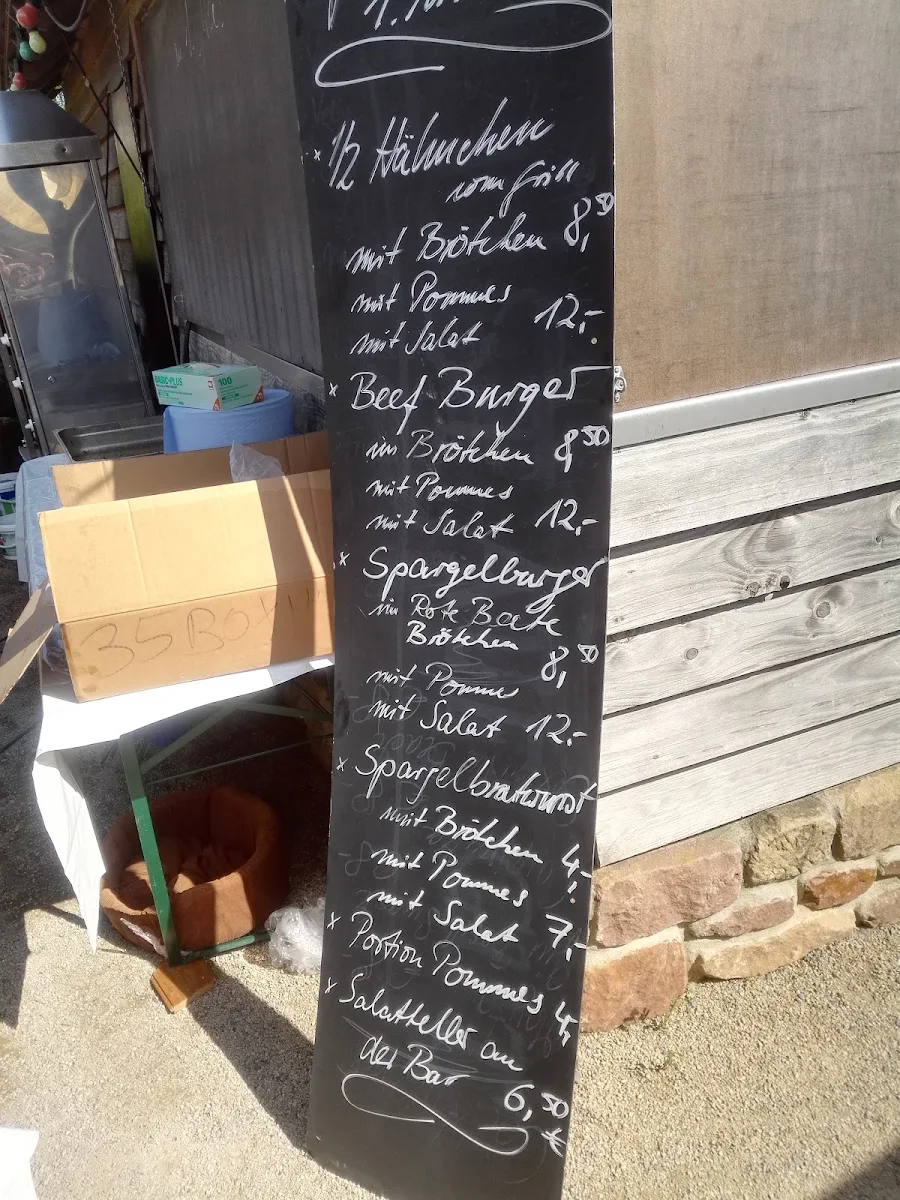 x 1/2 Hähnchen
vom Grill
mit Brötchen 8,50
mit Pommes
mit Salat 12,-
x Beef Burger
im Brötchen 8,50
mit Pommes
mit Salat 12,-
x Spargelburger
im Rote Beete
Brötchen
8,50
mit Pommes
mit Salat 12.-
x Spargelbratwurst
mit Brötchen 4,-
mit Pommes
mit Salat 7,-
x Portion Pommes 4,-
x Salatteller an
der Bar
6,50
€
BASIC-PLUS 100
35 BOX